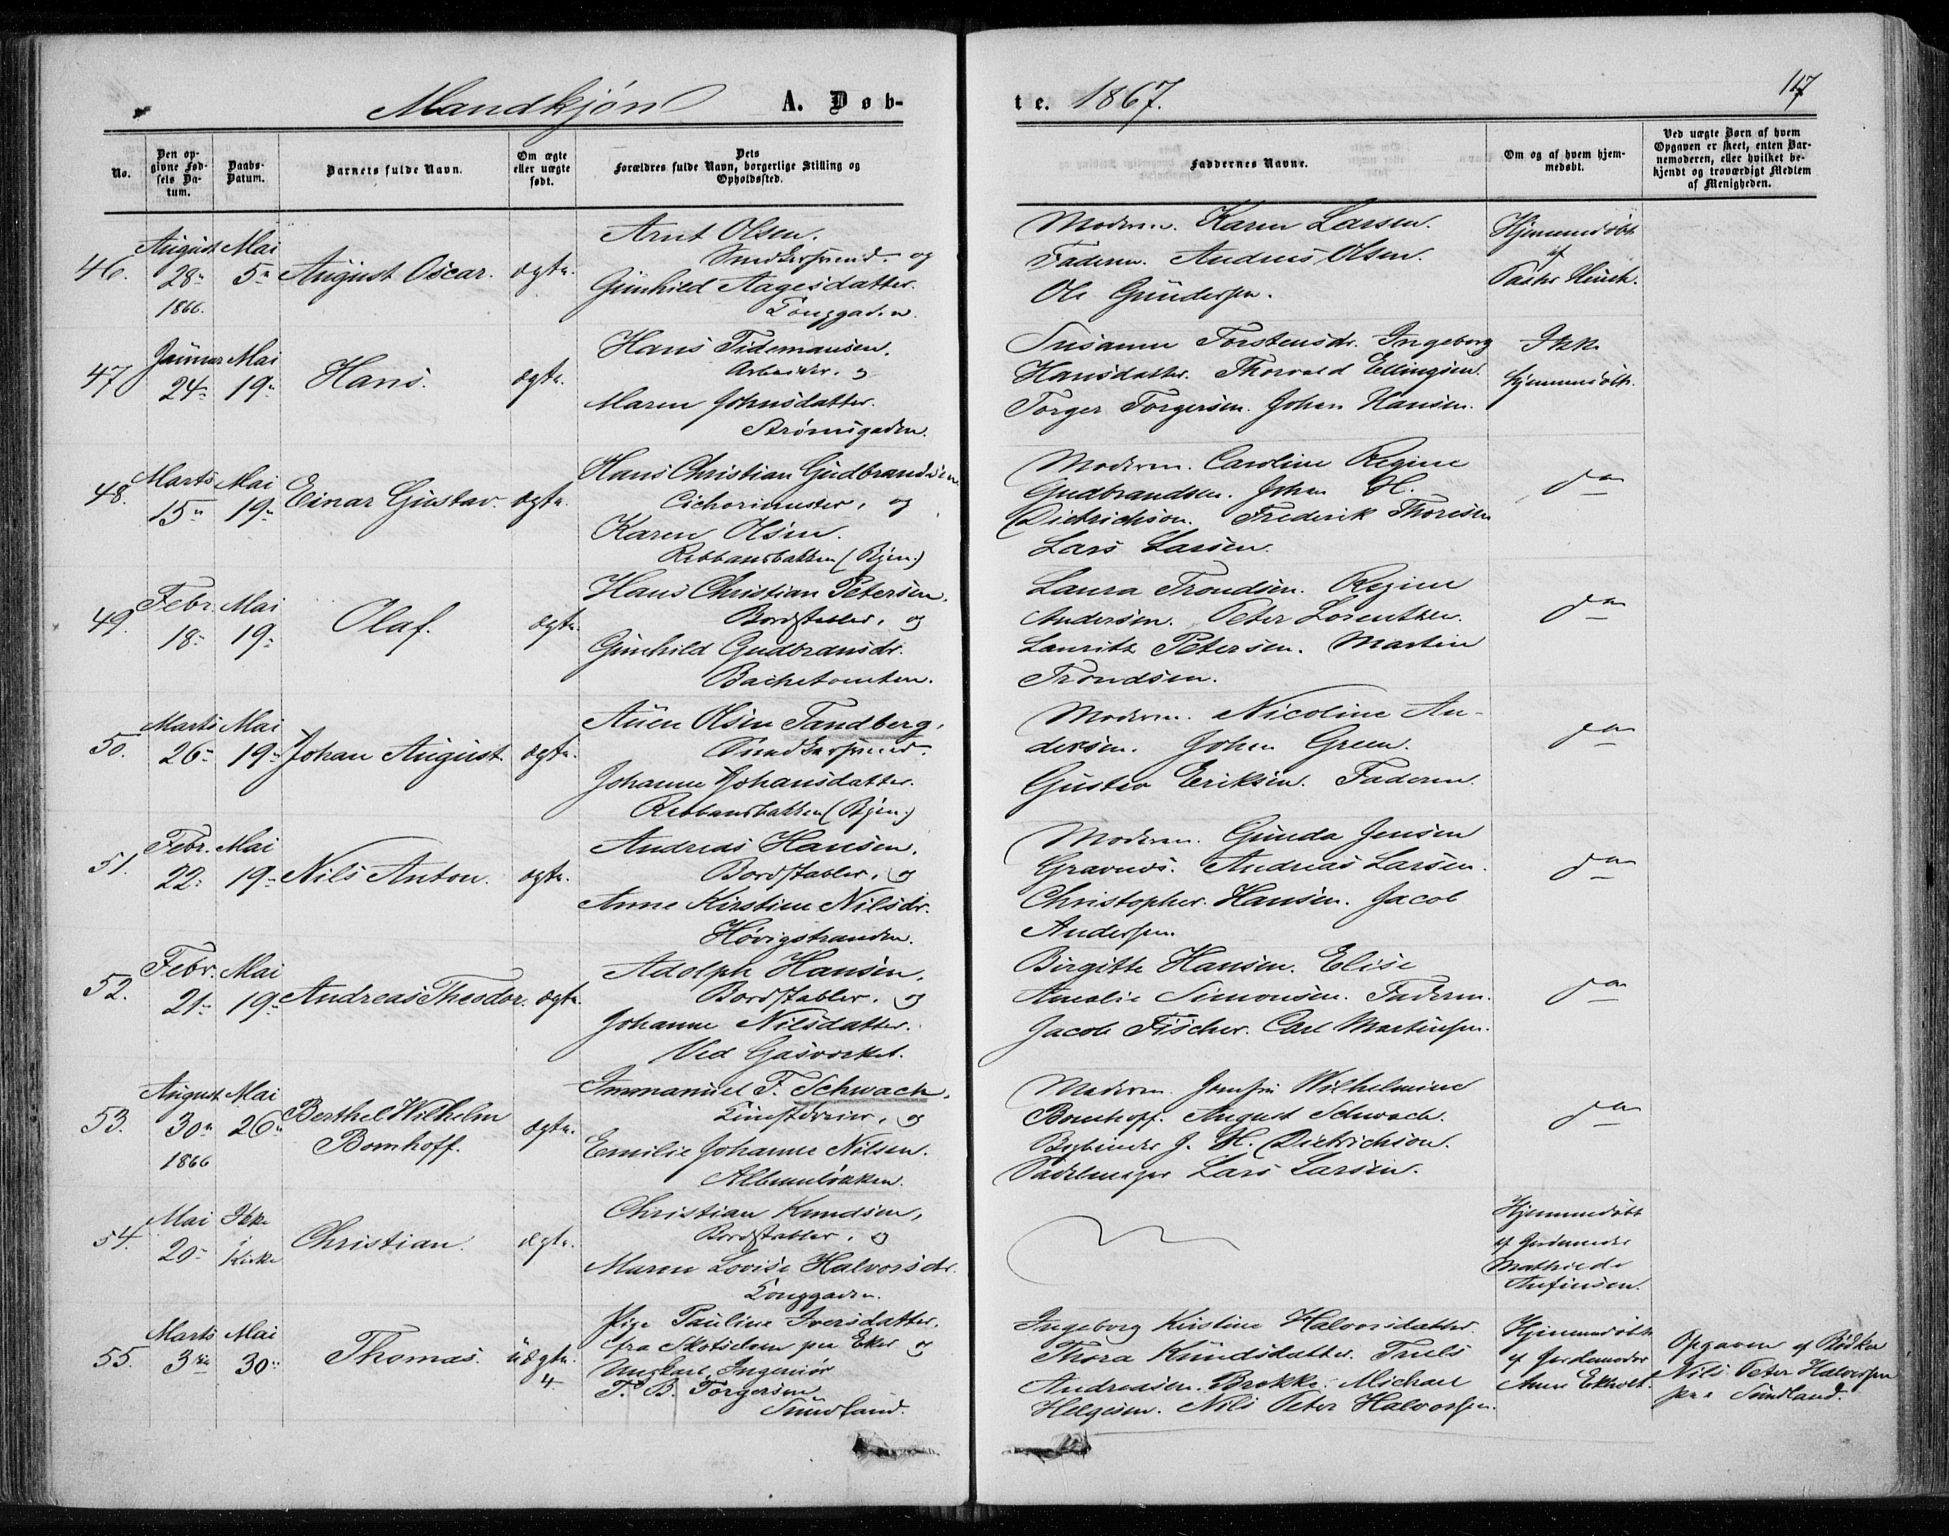 Mandkjøn A. Døb-
te. 1867. 117
No.
Den op-
givne Fød-
sels Da-
tum.
Daabs-
Datum.
Barnets fulde Navn.
Om ægte
eller uægte
født.
Dets
Forældres fulde Navn, borgerlige Stilling og
Opholdssted.
Faddernes Navne.
Om og af hvem hjem-
medøbt.
Ved uægte Børn af hvem
Opgaven er skeet, enten Bar-
nemoderen, eller hvilket be-
kjendt og troværdigt Medlem
af Menigheden.
46. August 28 1866. Mai 5 August Oscar. ægte.
Arnt Olsen.
Smedsvend og
Gunhild Aagesdatter.
Tonggaden.
Moderen. Karen Larsen.
Faderen. Andreas Olsen.
Ole Gundersen.
Hjemmedøbt
af
Pastor
47. Januar 24 Mai 19 Hans. ægte.
Hans Tidemansen.
Arbeider, og
Maren Johnsdatter.
Strømsgaden.
Susanne Torstensdr. Ingeborg
Hansdatter. Thorvald Ellingsen.
Torger Torgersen. Johan Hansen.
Ikke
hjemmedøbt.
48. Marts 15 Mai 19 Einar Gustav. ægte.
Hans Christian Gudbrandsen
Cichorimester, og
Karen Olsen.
Rebbansbakken (Bjen.)
Moderen. Caroline Regine
Gudbrandsen. Johan H.
Dietrichson. Frederik Thoresen
Lars Larsen.
do
49. Febr. 18 Mai 19 Olaf. ægte.
Hans Christian Petersen.
Bordstabler, og
Gunhild Gudbransdr.
Bachetomten.
Laura Trondsen. Regine
Andersen. Peter Lorentzen.
Lauritz Petersen. Martin
Trondsen.
do
50. Marts 26 Mai 19 Johan August. ægte.
Auen Olsen Tandberg,
Smedsvend
Johanne Johansdatter.
Rebbansbakken (Bjen.)
Moderen. Nicoline An-
dersen. Johan Green.
Gustav Eriksen. Faderen.
do
51. Febr. 22 Mai 19 Nils Anton. ægte.
Andreas Hansen.
Bordstabler, og
Anne Kirstine Nilsdr.
Høvigstranden.
Moderen. Gunda Jensen
Gravnes. Andreas Larsen.
Christopher Hansen. Jacob
Andersen.
do
52. Febr. 21 Mai 19 Andreas Theodor. ægte.
Adolph Hansen,
Bordstabler, og
Johanne Nilsdatter.
Ved Gasværket.
Birgitte Hansen. Elise
Amalie Simonsen. Faderen.
Jacob Fischer. Carl Martinsen.
do
53. August 30 1866 Mai 26 Berthel Wilhelm
Bomhoff. ægte.
Immanuel F. Schwach,
Kunstdreier, og
Emilie Johanne Nilsen.
Albumløkken.
Moderen. Josefin Wilhelmine
Bomhoff. August Schwach.
Bogbinder J. H. Dietrichson.
Sadelmager Lars Larsen.
do
54. Mai 20 Ikke
i
Kirke Christian. ægte.
Christian Knudsen,
Bordstabler, og
Maren Lovise Halvorsdr.
Tonggaden.
Hjemmedøbt
af Jordemoder
Mathilde
Anfinsen.
55. Marts 3die Mai 30 Thomas. uægte.
4.
Pige Pauline Iversdatter,
fra Skotselven paa Eker og
Ungkarl, Ingeniør
T. B. Torgersen
Sundland.
Ingeborg Kirstine Halvorsdatter
Thora Knudsdatter. Truls
Andreasen. Brekke. Michael
Helgesen. Nils Peter Halvorsen.
Hjemmedøbt
af Jordemoder
Anne Ekholt.
Opgaven af Bødker
Nils Peter Halvorsen
paa Sundland.